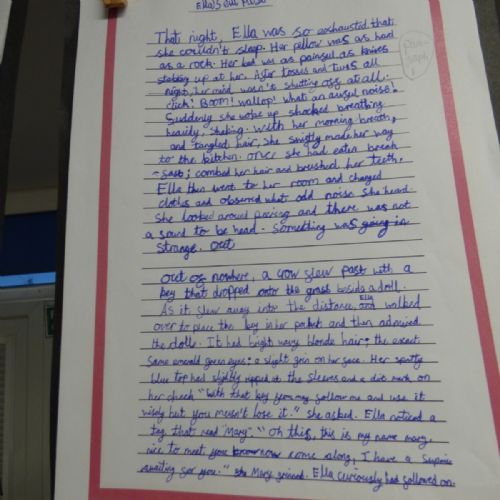 That night, Ella was so exhausted that
she couldn't sleep. Her pillow was as hard
as a rock. Her bed was as painful as knives
stabbing up at her. After tosses and turns all
night, her mind wasn't shutting off at all.
Click! Boom! Wallop! What an awful noise!
Suddenly she woke up shocked breathing
heavily, shaking. With her morning breath,
and tangled hair, she swiftly made her way
to the kitchen. Once she had eaten break
-fast; combed her hair and brushed her teeth.
Ella then went to her room and changed
clothes and observed what odd noise she heard.
She looked around and there was not
a sound to be head. Something was going in
strange. out
out of nowhere, a crow flew past with a
key that dropped onto the grass beside a doll.
As it flew away into the distance, Ella walked
over to place the key in her pocket and then admired
the dolls. It had bright wavy blonde hair; the exact
same emerald green eyes; a slight grin on her face. Her spotty
blue top had slightly ripped at the sleeves and a dirt mark on
her cheek "With that key you may follow me and use it
wisely but you musn't lose it." she asked. Ella noticed a
tag that read "Mary". "Oh this, this is my name mary,
nice to meet you now come along, I have a
awaiting for you." she Mary joined. Ella curiously had followed on.